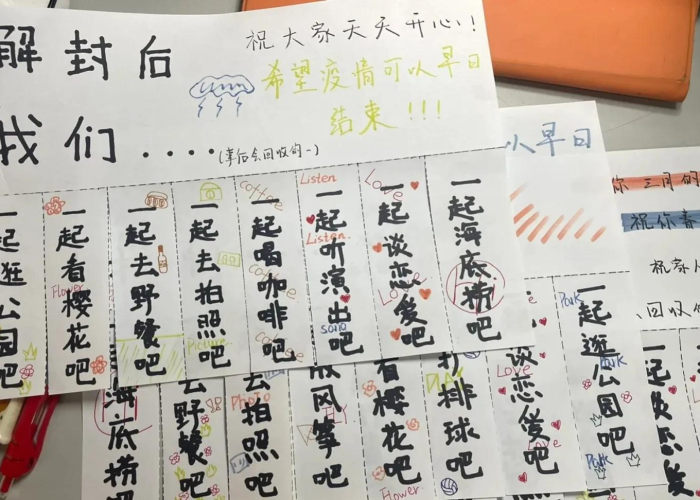 解封后
我们....
(幸后会回收的~)
祝大家天天开心!!
希望疫情可以早日
结束!!!
一起逛公园吧
一起看樱花吧
Flower
一起去野餐吧
一起去拍照吧
Picture
一起喝咖啡吧
coffee
coffee
coffee
一起听演出吧
Listen
Listen
song
一起谈恋爱吧
Love
Love
Love
一起海底捞吧
Hi
以早日
你三月的
祝你春
祝家人
回收的
海底捞吧
去野餐吧
去拍照吧
Photo
放风筝吧
FLY
看樱花吧
Flower
打排球吧
PLAY
谈恋爱吧
Love
Love
一起逛公园吧
Park
Park
Park
一起谈恋爱
一起